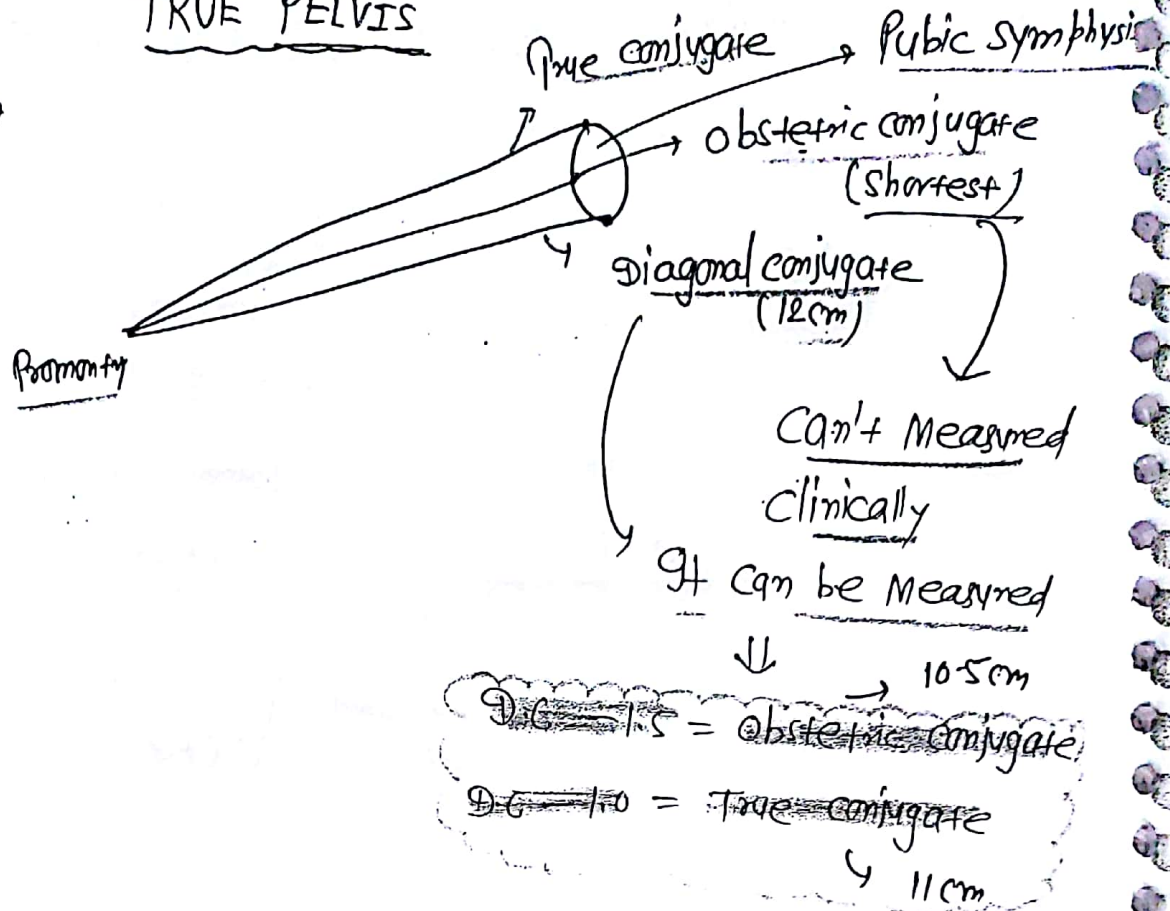 TRUE PELVIS
True conjugate
Pubic symphysis
Obstetric conjugate
(shortest)
Diagonal conjugate
(12cm)
Promonty
Can't Measured
Clinically
It can be Measured
10.5cm
D.C — 1.5 = Obstetric conjugate
D.C — 1.0 = True conjugate
11cm